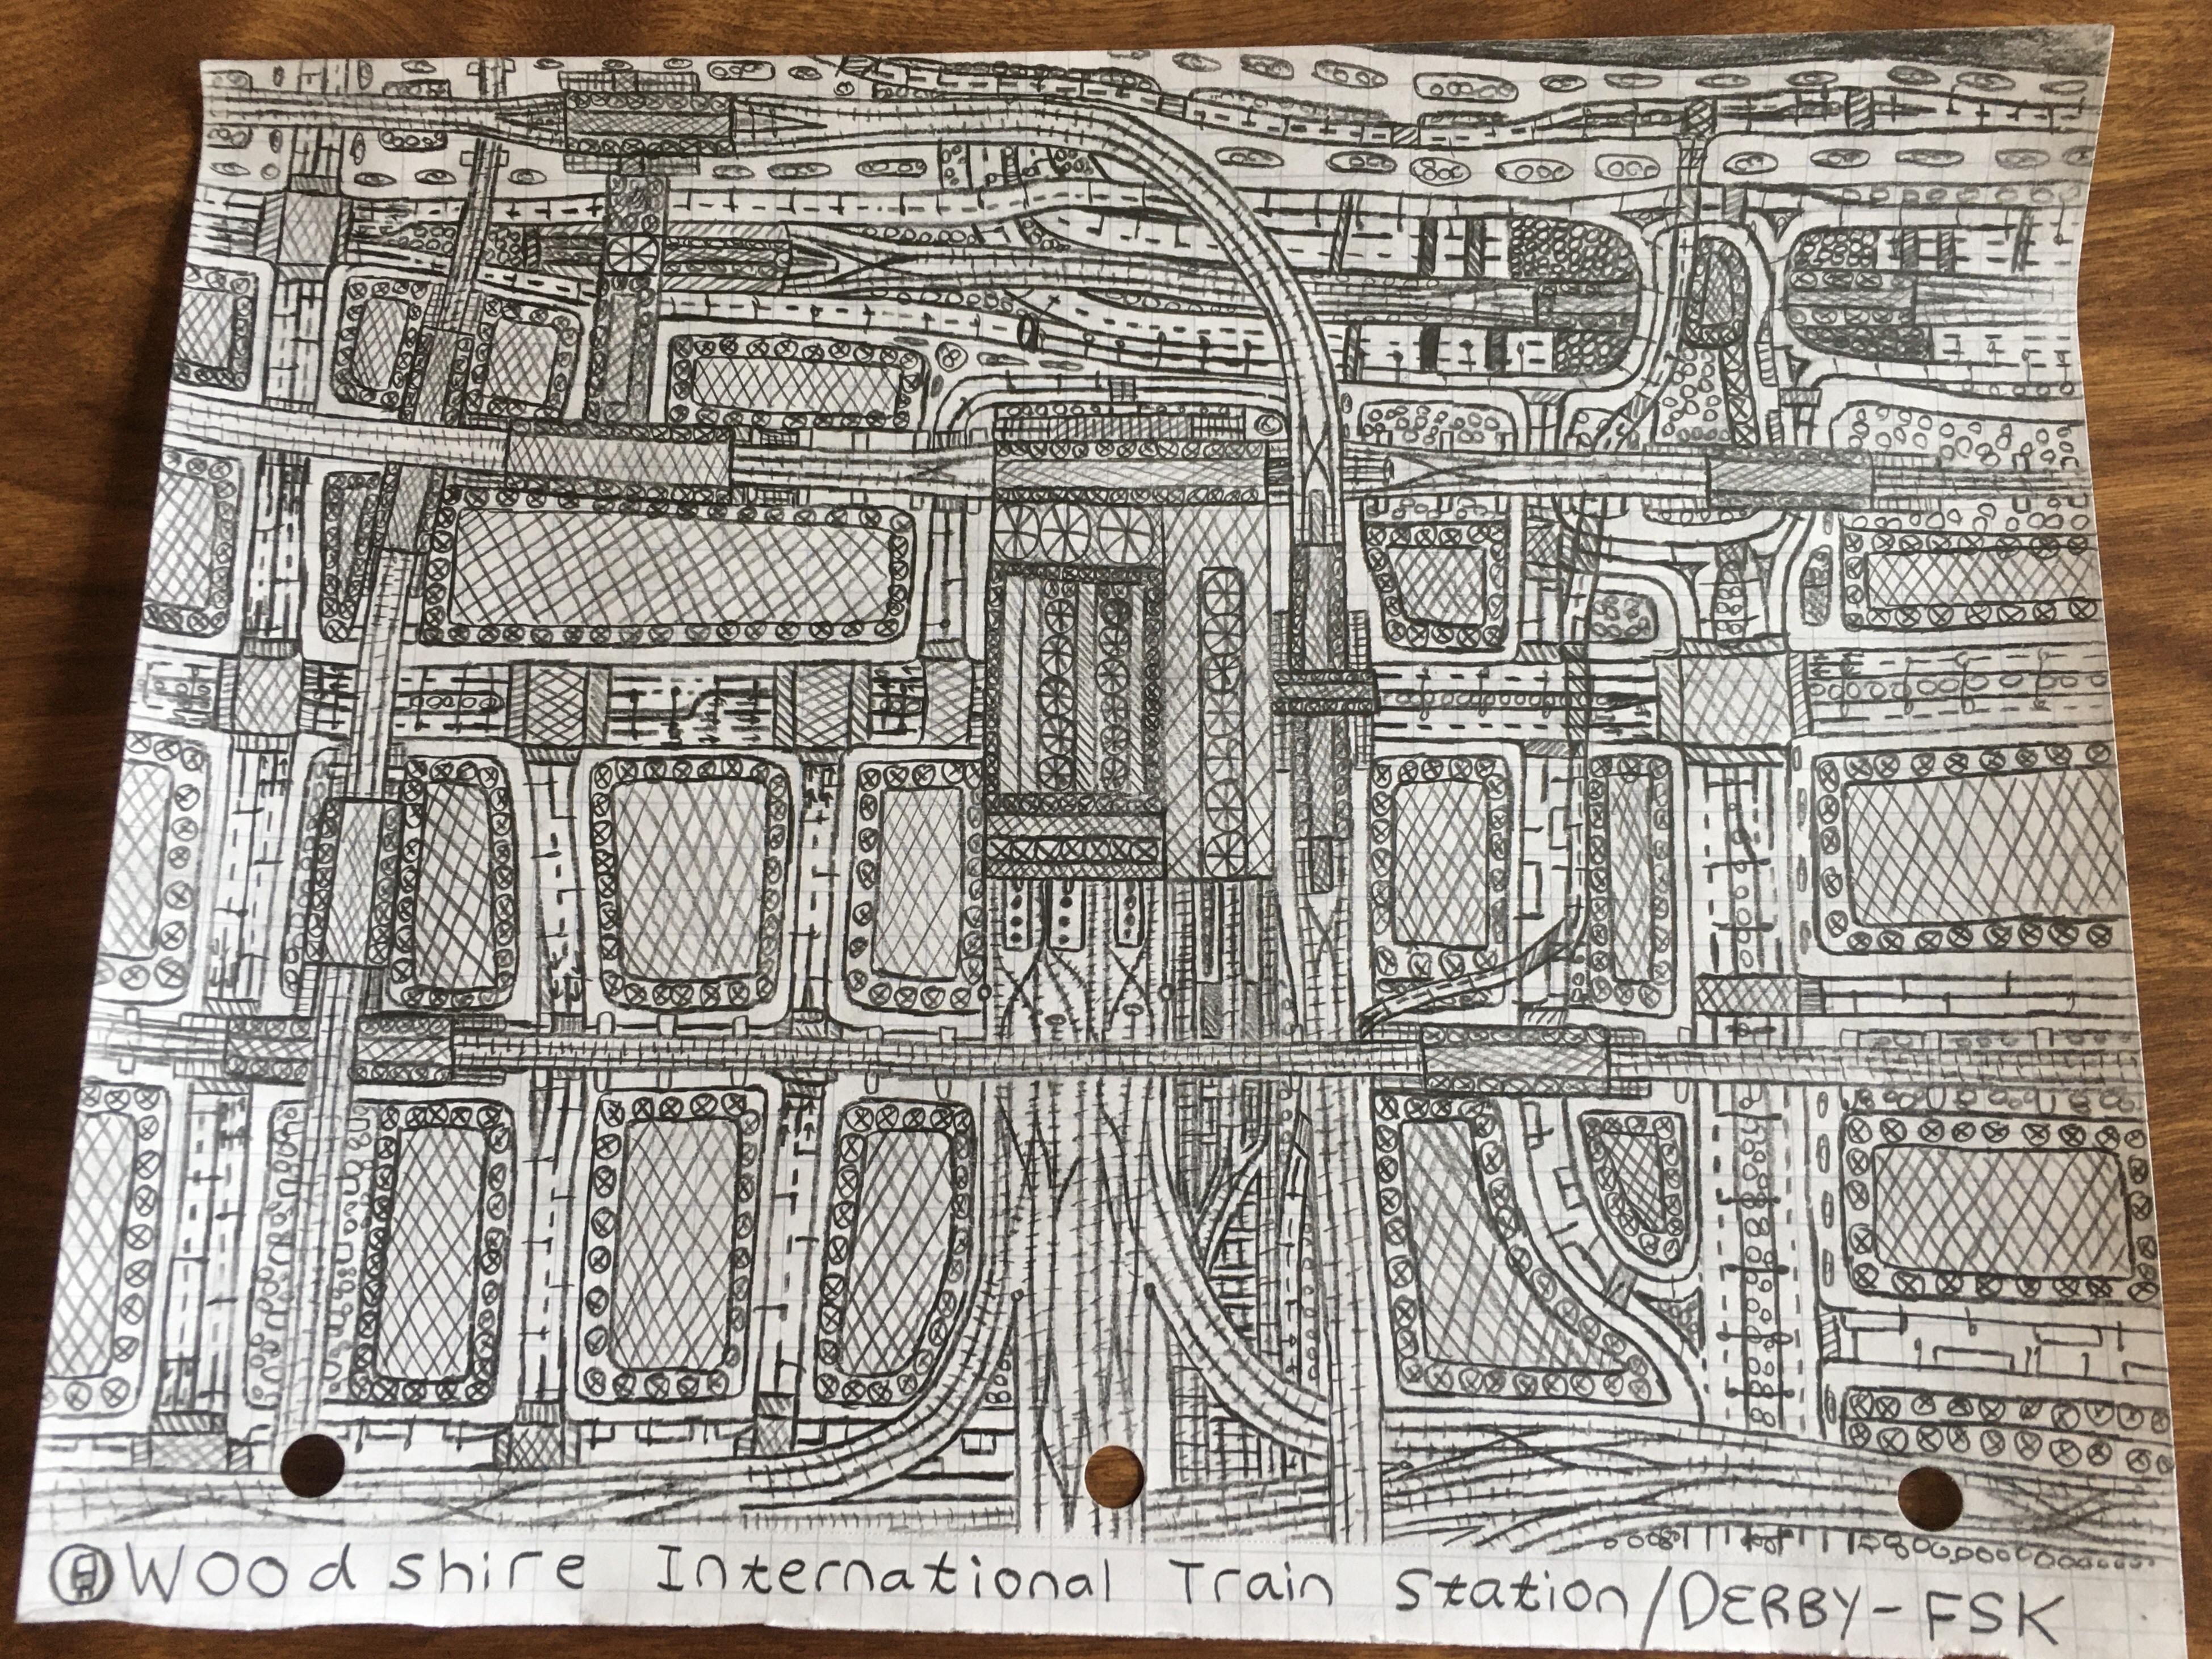 Woodshire International Train Station/DERBY-FSK